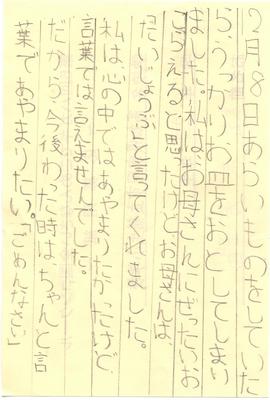 2月8日あらいものをしていた
ら、うっかりお皿をおとしてしまい
ました。私はお母さんにぜったいお
こらえると思ったけどお母さんは、
だいじょうぶ」と言ってくれました。
私は心の中ではあやまりたかったけど、
言葉では言えませんでした。
だから、今後わった時はちゃんと言
葉であやまりたい。「ごめんなさい」